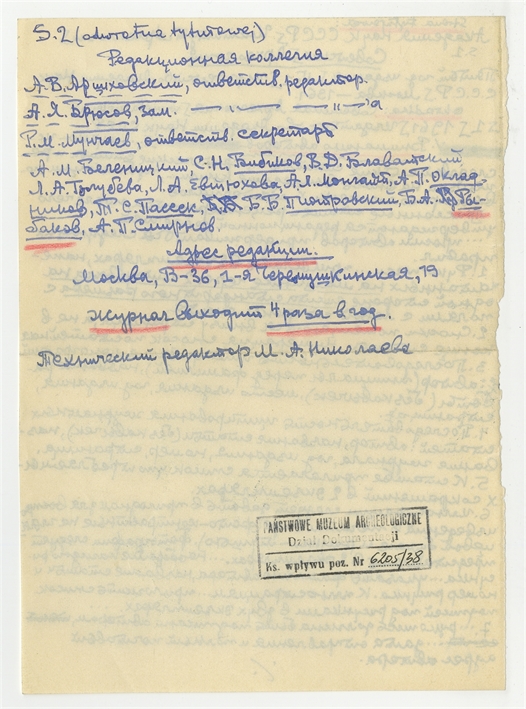 S. 2 (odwrotna tytułowej)
Редакционная коллегия
А. В. Арциховский, ответств. редактор.
А. Я. Брюсов, зам. —〃— —〃—а
Р. М. Мунчаев, ответств. секретарь
А. М. Беленицкий, С. Н. Бибиков, В. Д. Блаватский
Л. А. Голубева, Л. А. Евтюхова, А. Л. Монгайт, А. П. Оклад-
ников, Т. С. Пассек, Б. Б. Пиотровский, Б. А. Ры-
баков, А. П. Смирнов.
Адрес редакции.
Москва, В-36, 1-я Черемушкинская, 19
Журнал выходит 4 раза в год.
Технический редактор М. А. Николаева
PAŃSTWOWE MUZEUM ARCHEOLOGICZNE
Dział Dokumentacji
Ks. wpływu poz. Nr 6205/38